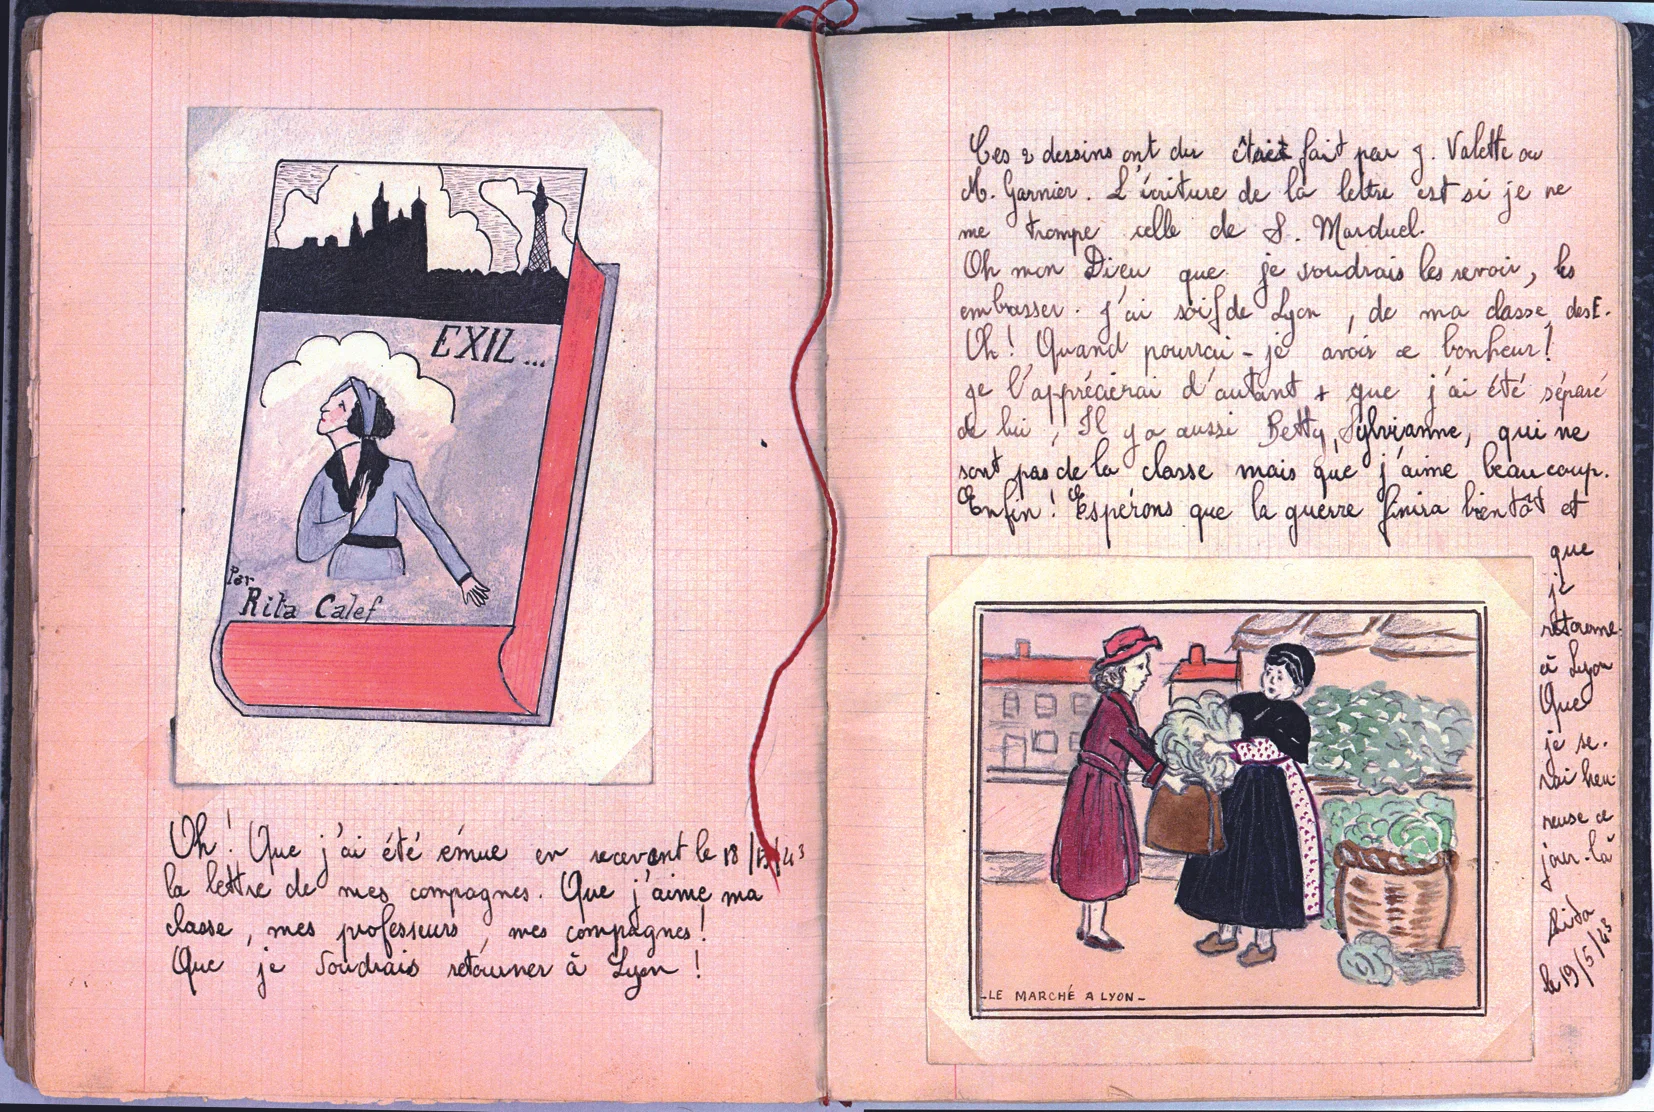 EXIL...
Par
Rita Calef
Oh! Que j'ai été émue en recevant le 18/5/43
la lettre de mes compagnes. Que j'aime ma
classe, mes professeurs, mes compagnes!
Que je voudrais retourner à Lyon!
Ces 2 dessins ont du être fait par J. Valette ou
M. Garnier. L'écriture de la lettre est si je ne
me trompe celle de S. Marduel.
Oh mon Dieu que je voudrais les revoir, les
embrasser. J'ai soif de Lyon, de ma classe, des E.
Oh! Quand pourrai-je avoir ce bonheur!
je l'apprécierai d'autant + que j'ai été séparé
de lui! Il y a aussi Betty, Sylvianne, qui ne
sont pas de la classe mais que j'aime beaucoup.
Enfin! Espérons que la guerre finira bientôt et
que
je
retourne-
à Lyon
Que
je se-
rai heu-
reuse ce
jour-là
Rita
le 19/5/43
-LE MARCHÉ A LYON-